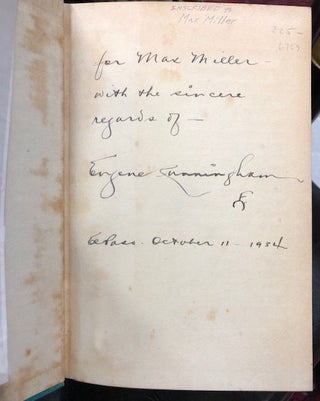 INSCRIBED to
Max Miller
225-
for Max Miller -
with the sincere
regards of -
Eugene Cunningham
El Paso. October 11 - 1934